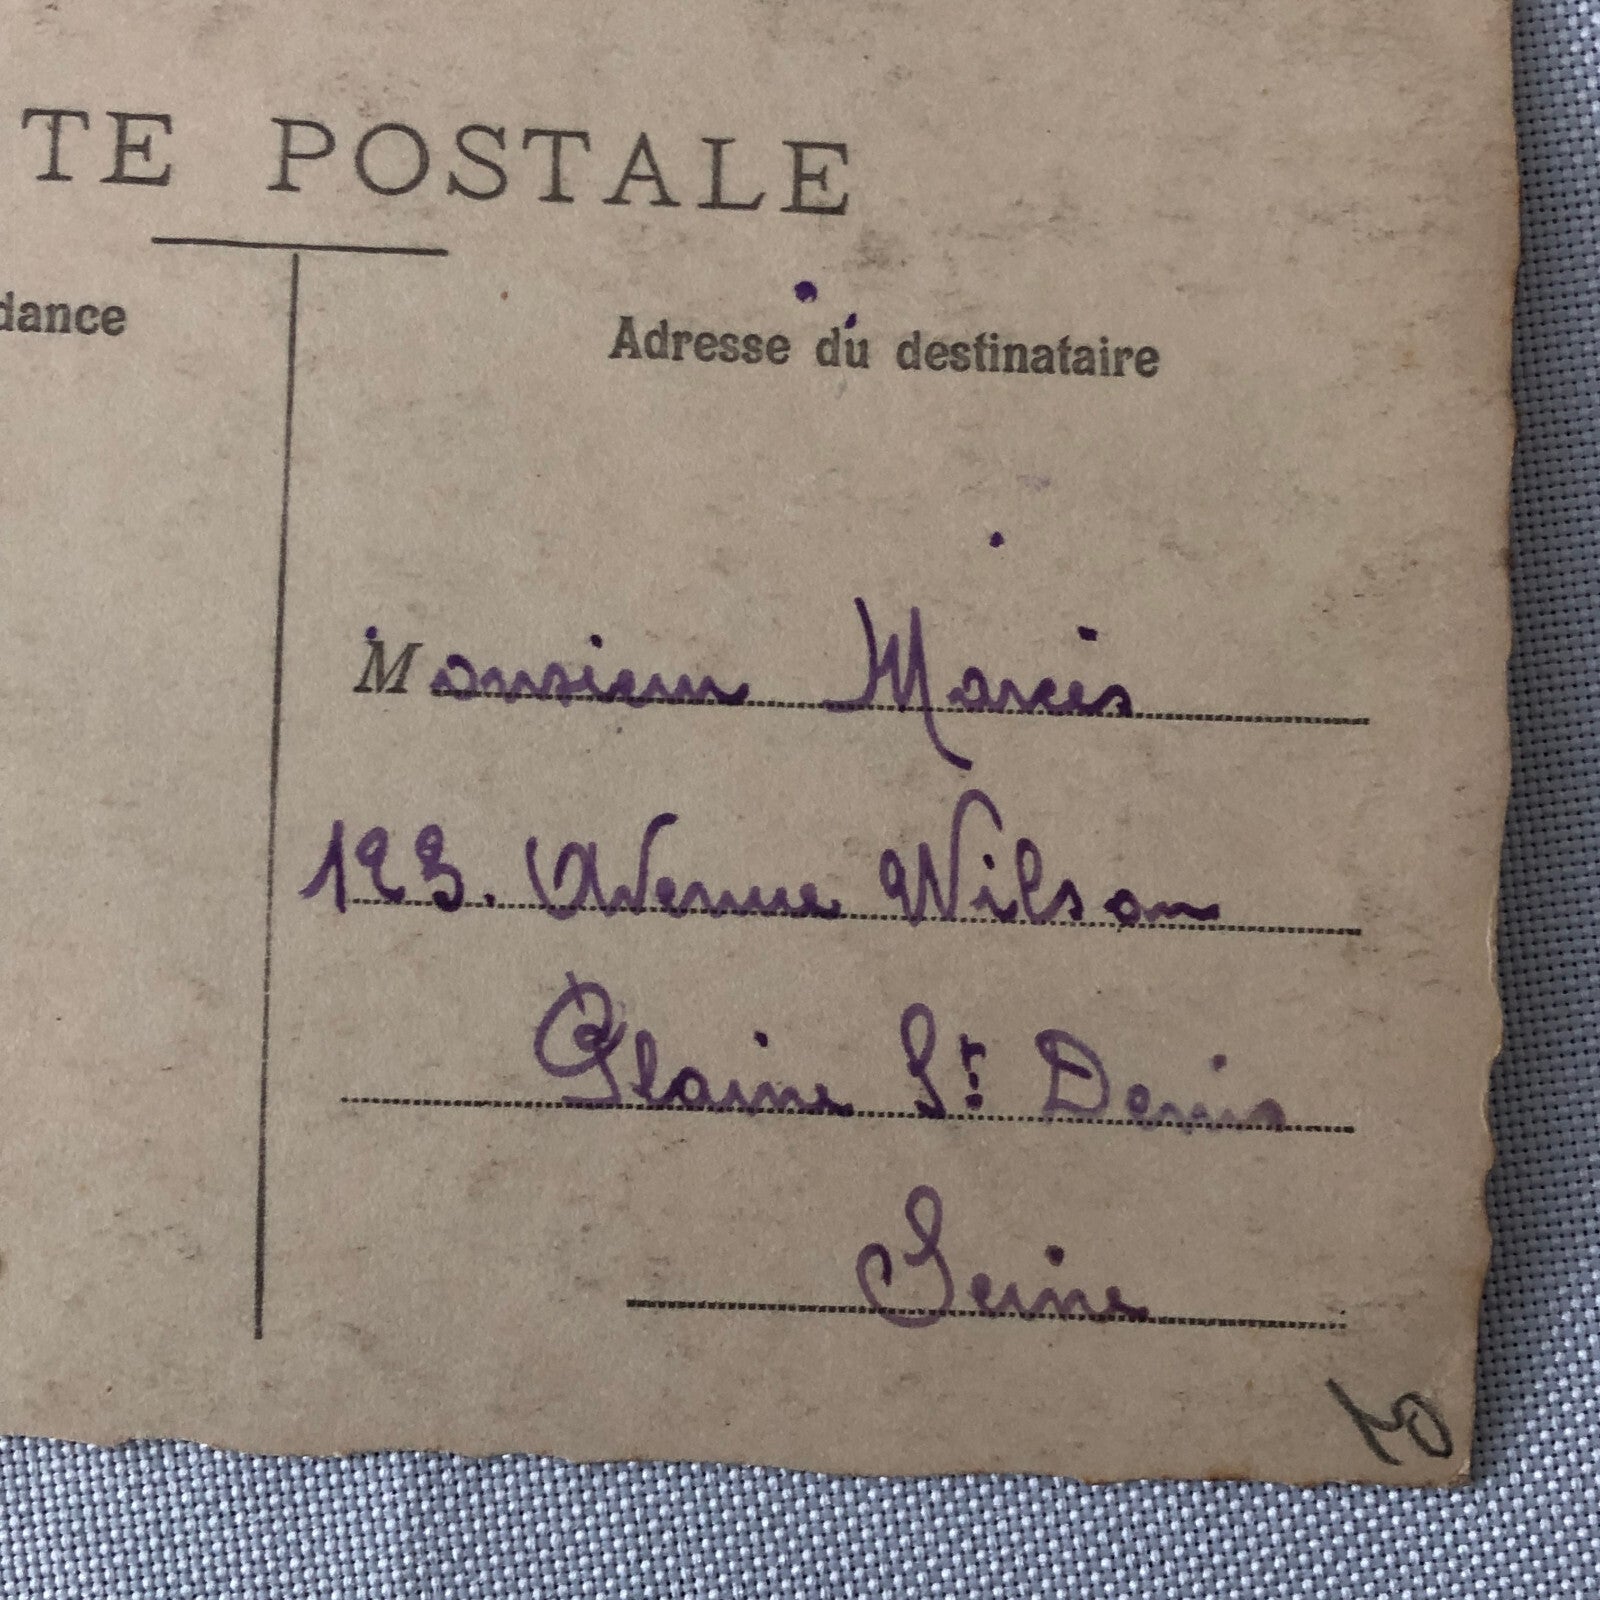 TE POSTALE
dance
Adresse du destinataire
Monsieur
123. Avenue Wilson
Plaine St Denis
Seine
10